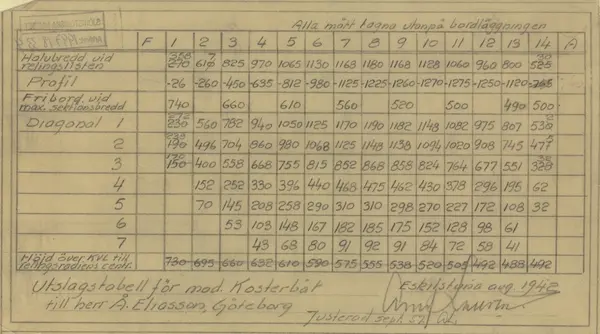 Alla mått tagna utanpå bordläggningen
F 1 2 3 4 5 6 7 8 9 10 11 12 13 14 A
Halvbredd vid relingslisten 270 616 825 970 1065 1130 1168 1180 1168 1128 1060 960 800 525
Profil -26 -260 -450 -635 -812 -980 -1125 -1225 -1260 -1270 -1275 -1250 -1120
Fribord vid max. sektionsbredd 740 660 610 560 520 500 490 500
Diagonal 1 230 560 782 940 1050 1125 1170 1190 1182 1148 1082 975 807 530
2 190 496 704 860 980 1068 1125 1148 1138 1094 1020 908 745 477
3 150 400 558 668 755 815 852 868 858 824 764 677 551 328
4 152 252 330 396 440 468 475 462 430 378 296 195 62
5 70 145 208 258 290 310 310 298 270 227 172 108 32
6 53 103 148 167 182 185 175 152 128 98 61
7 43 68 80 91 92 91 84 72 58 41
Höjd över KVL till relingsradiens centr. 730 695 660 632 610 590 575 555 538 520 505 492 488 492
Utslagstabell för mod. Kosterbåt
till herr Å. Eliasson, Göteborg
Eskilstuna aug 1942
Justerad sept. 51